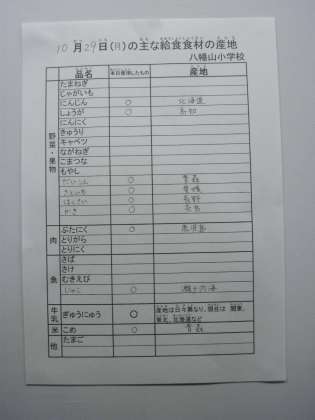 10月29日(月)の主な給食食材の産地
八幡山小学校
品名 本日使用したもの 産地
野菜・果物
たまねぎ
じゃがいも
にんじん ○ 北海道
しょうが ○ 高知
にんにく
きゅうり
キャベツ
ながねぎ
こまつな
もやし
だいこん ○ 青森
さといも ○ 愛媛
はくさい ○ 長野
かき ○
肉
ぶたにく ○ 鹿児島
とりがら
とりにく
魚
さば
さけ
むきえび
じゃこ ○ 瀬戸内海
牛乳 ぎゅうにゅう ○ 産地は日々異なり、現在は 関東、
東北、北海道など
米 こめ ○ 青森
他 たまご